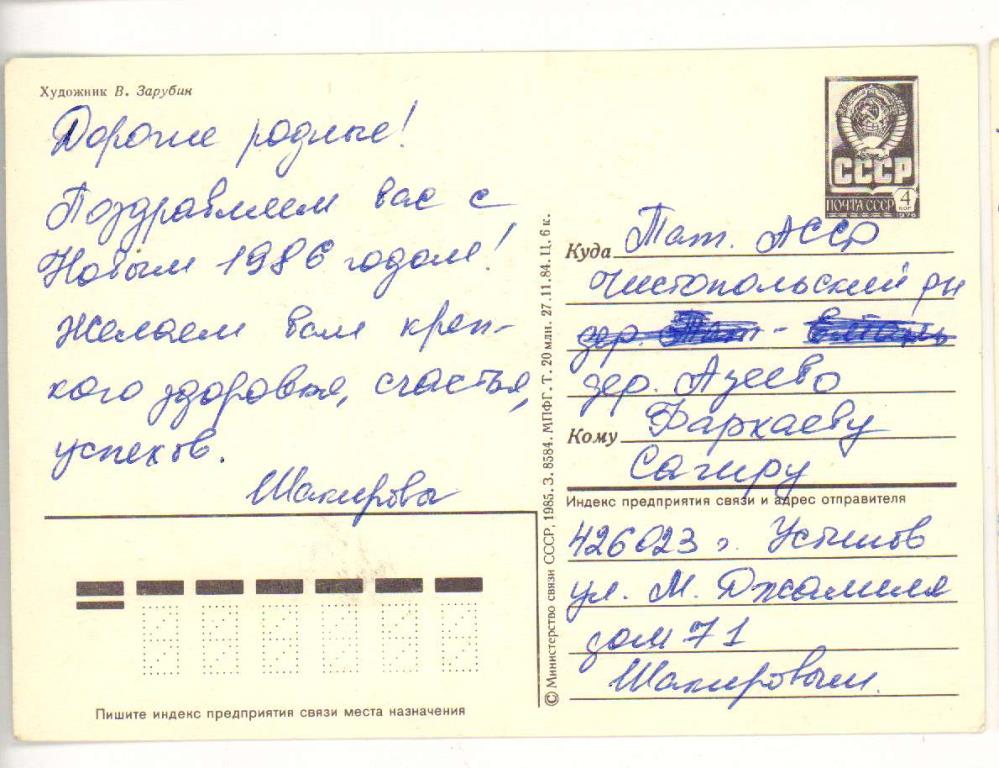 Художник В. Зарубин
Дорогие родные!
Поздравляем вас с
Новым 1986 годом!
Желаем вам креп-
кого здоровья, счастья,
успехов.
Шакировы
СССР
ПОЧТА СССР
4
КОП
1976
Куда Тат. АССР
Чистопольский рн
дер.
дер. Азеево
Кому Фархаеву
Сагиру
Индекс предприятия связи и адрес отправителя
426023 г. Устинов
ул. М. Джалиля
дом 71
Шакировым.
© Министерство связи СССР, 1985. З. 8584. МПФГ. Т. 20 млн. 27.11.84. Ц. 6 к.
Пишите индекс предприятия связи места назначения